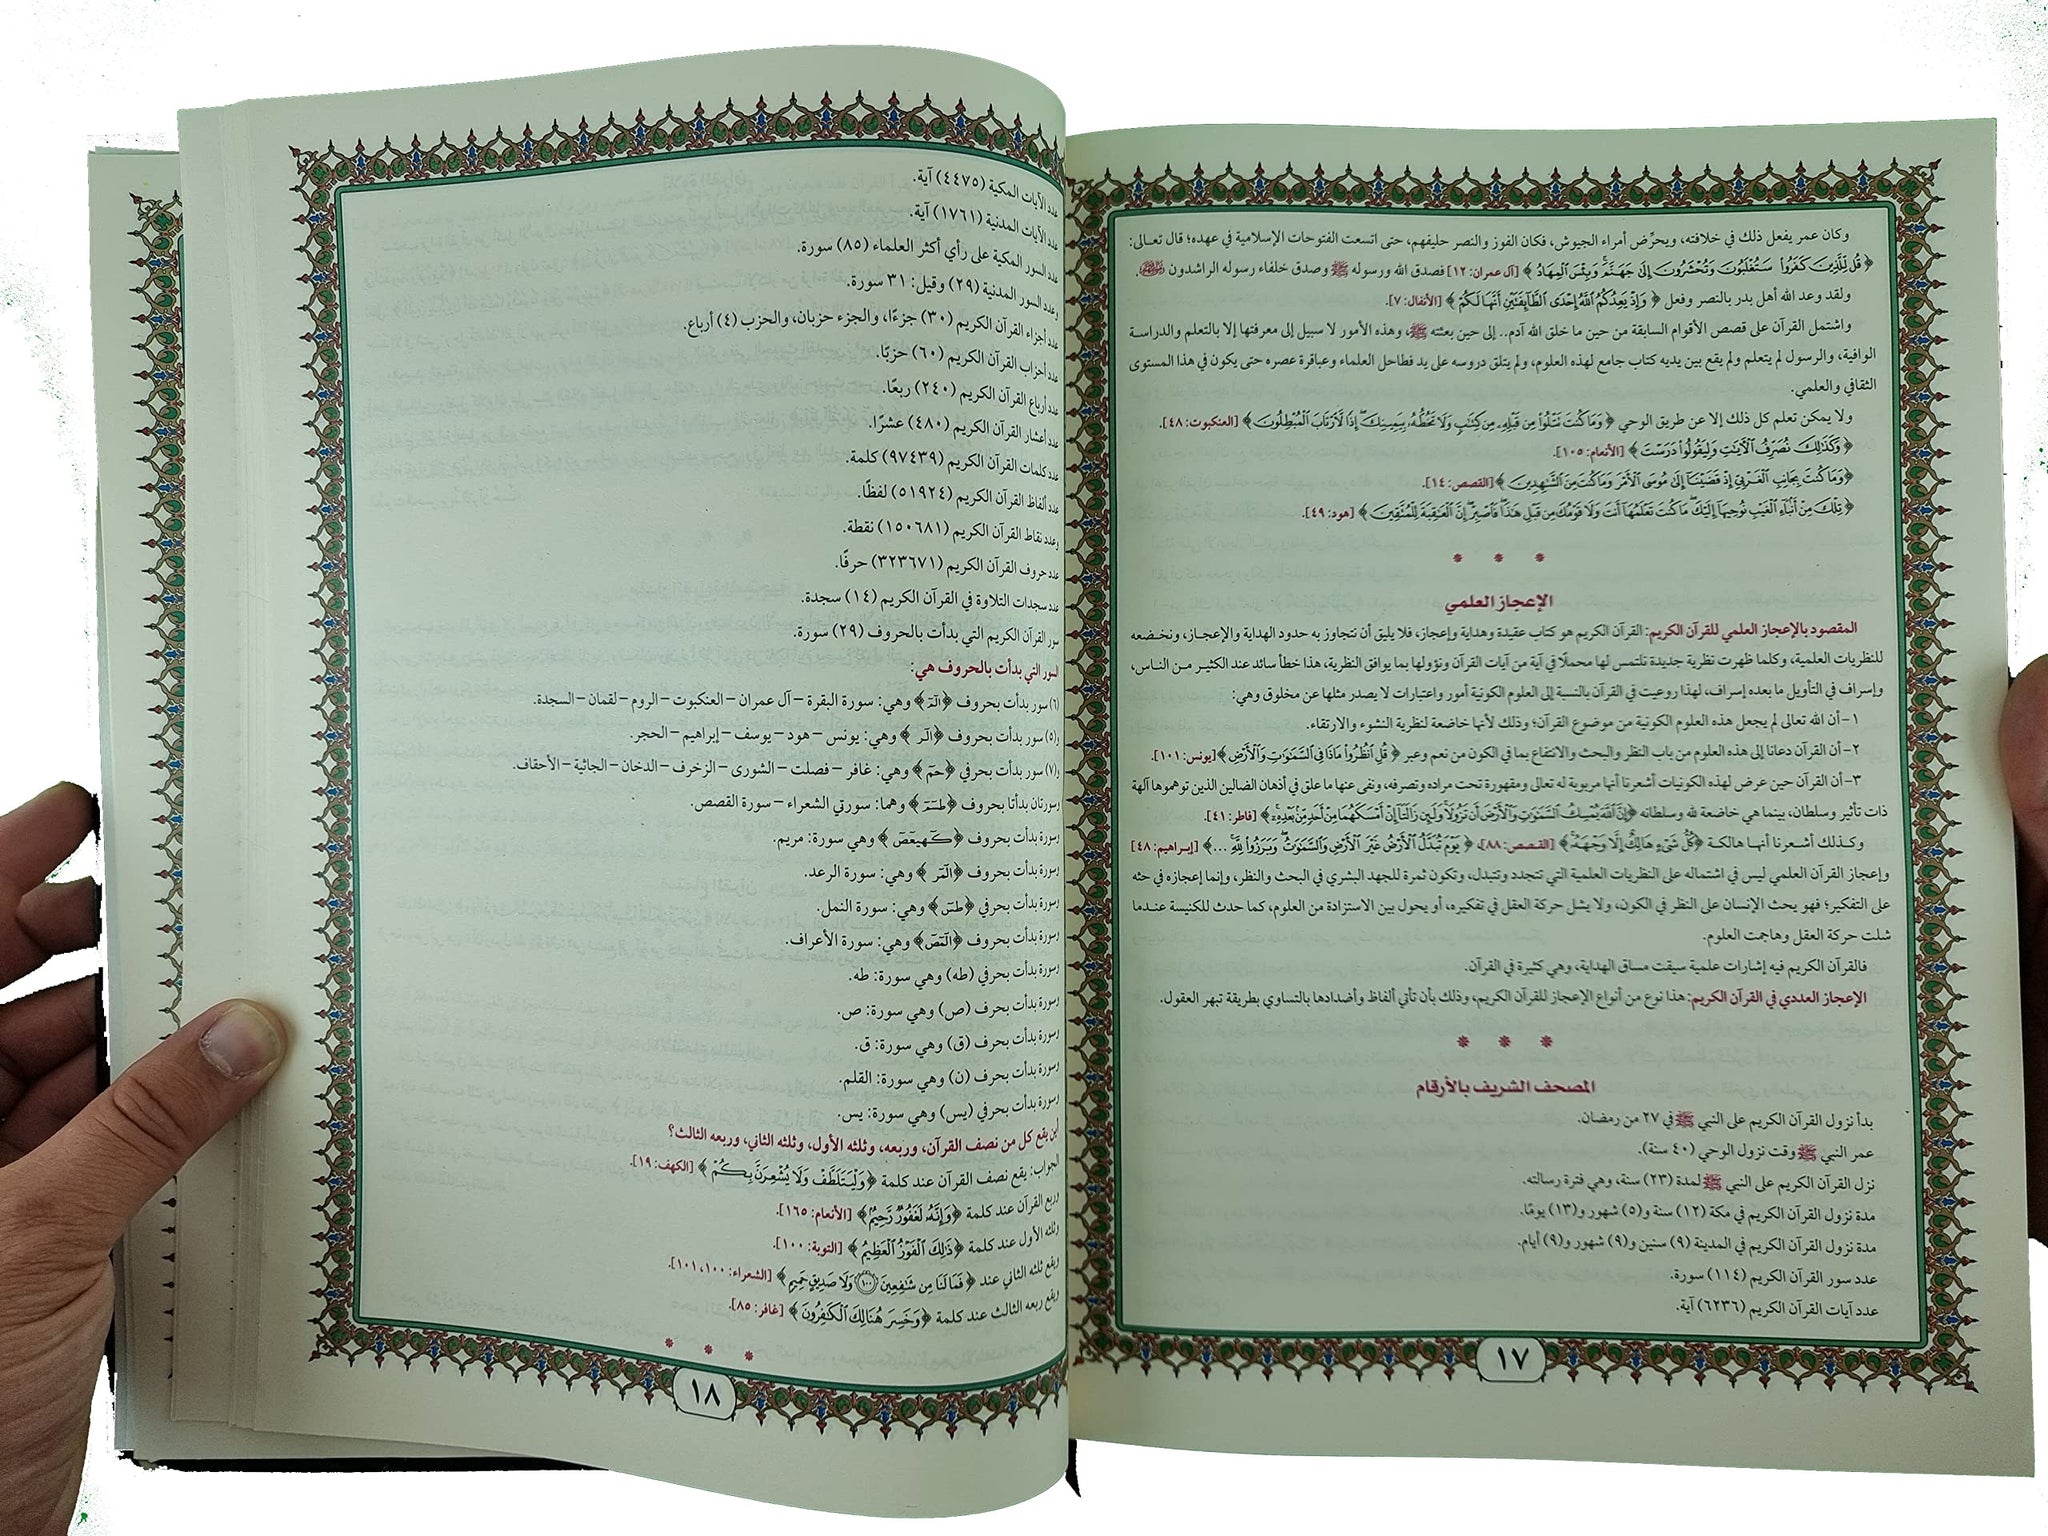 وكان عمر يفعل ذلك في خلافته، ويحرِّض أمراء الجيوش، فكان الفوز والنصر حليفهم، حتى اتسعت الفتوحات الإسلامية في عهده؛ قال تعالى:
﴿ قُل لِّلَّذِينَ كَفَرُوا۟ سَتُغْلَبُونَ وَتُحْشَرُونَ إِلَىٰ جَهَنَّمَ ۚ وَبِئْسَ ٱلْمِهَادُ ﴾ [آل عمران: ١٢] فصدق الله ورسوله ﷺ وصدق خلفاء رسوله الراشدون
ولقد وعد الله أهل بدر بالنصر وفعل ﴿ وَإِذْ يَعِدُكُمُ ٱللَّهُ إِحْدَى ٱلطَّآئِفَتَيْنِ أَنَّهَا لَكُمْ ﴾ [الأنفال: ٧].
واشتمل القرآن على قصص الأقوام السابقة من حين ما خلق الله آدم.. إلى حين بعثته ﷺ، وهذه الأمور لا سبيل إلى معرفتها إلا بالتعلم والدراسة
الوافية، والرسول لم يتعلم ولم يقع بين يديه كتاب جامع لهذه العلوم، ولم يتلق دروسه على يد فطاحل العلماء وعباقرة عصره حتى يكون في هذا المستوى
الثقافي والعلمي.
ولا يمكن تعلم كل ذلك إلا عن طريق الوحي ﴿ وَمَا كُنتَ تَتْلُوا۟ مِن قَبْلِهِۦ مِن كِتَٰبٍ وَلَا تَخُطُّهُۥ بِيَمِينِكَ ۖ إِذًا لَّٱرْتَابَ ٱلْمُبْطِلُونَ ﴾ [العنكبوت: ٤٨].
﴿ وَكَذَٰلِكَ نُصَرِّفُ ٱلْءَايَٰتِ وَلِيَقُولُوا۟ دَرَسْتَ ﴾ [الأنعام: ١٠٥].
﴿ وَمَا كُنتَ بِجَانِبِ ٱلْغَرْبِىِّ إِذْ قَضَيْنَآ إِلَىٰ مُوسَى ٱلْأَمْرَ وَمَا كُنتَ مِنَ ٱلشَّٰهِدِينَ ﴾ [القصص: ١٤].
﴿ تِلْكَ مِنْ أَنۢبَآءِ ٱلْغَيْبِ نُوحِيهَآ إِلَيْكَ ۖ مَا كُنتَ تَعْلَمُهَآ أَنتَ وَلَا قَوْمُكَ مِن قَبْلِ هَٰذَا ۖ فَٱصْبِرْ ۖ إِنَّ ٱلْعَٰقِبَةَ لِلْمُتَّقِينَ ﴾ [هود: ٤٩].
* * *
الإعجاز العلمي
المقصود بالإعجاز العلمي للقرآن الكريم: القرآن الكريم هو كتاب عقيدة وهداية وإعجاز، فلا يليق أن نتجاوز به حدود الهداية والإعجاز، ونخضعه
للنظريات العلمية، وكلما ظهرت نظرية جديدة تلتمس لها محملًا في آية من آيات القرآن ونؤولها بما يوافق النظرية، هذا خطأ سائد عند الكثير من الناس،
وإسراف في التأويل ما بعده إسراف، لهذا روعيت في القرآن بالنسبة إلى العلوم الكونية أمور واعتبارات لا يصدر مثلها عن مخلوق وهي:
١- أن الله تعالى لم يجعل هذه العلوم الكونية من موضوع القرآن؛ وذلك لأنها خاضعة لنظرية النشوء والارتقاء.
٢- أن القرآن دعانا إلى هذه العلوم من باب النظر والبحث والانتفاع بما في الكون من نعم وعبر ﴿ قُلِ ٱنظُرُوا۟ مَاذَا فِى ٱلسَّمَٰوَٰتِ وَٱلْأَرْضِ ﴾ [يونس: ١٠١].
٣- أن القرآن حين عرض لهذه الكونيات أشعرنا أنها مربوبة له تعالى ومقهورة تحت مراده وتصرفه، ونفى عنها ما علق في أذهان الضالين الذين توهموها آلهة
ذات تأثير وسلطان، بينما هي خاضعة لله وسلطانه ﴿ إِنَّ ٱللَّهَ يُمْسِكُ ٱلسَّمَٰوَٰتِ وَٱلْأَرْضَ أَن تَزُولَا ۚ وَلَئِن زَالَتَآ إِنْ أَمْسَكَهُمَا مِنْ أَحَدٍ مِّنۢ بَعْدِهِۦٓ ﴾ [فاطر: ٤١].
وكذلك أشعرنا أنها هالكة ﴿ كُلُّ شَىْءٍ هَالِكٌ إِلَّا وَجْهَهُۥ ﴾ [القصص: ٨٨]، ﴿ يَوْمَ تُبَدَّلُ ٱلْأَرْضُ غَيْرَ ٱلْأَرْضِ وَٱلسَّمَٰوَٰتُ ۖ وَبَرَزُوا۟ لِلَّهِ ... ﴾ [إبراهيم: ٤٨]
وإعجاز القرآن العلمي ليس في اشتماله على النظريات العلمية التي تتجدد وتتبدل، وتكون ثمرة للجهد البشري في البحث والنظر، وإنما إعجازه في حثه
على التفكير؛ فهو يحث الإنسان على النظر في الكون، ولا يشل حركة العقل في تفكيره، أو يحول بين الاستزادة من العلوم، كما حدث للكنيسة عندما
شلت حركة العقل وهاجمت العلوم.
فالقرآن الكريم فيه إشارات علمية سيقت مساق الهداية، وهي كثيرة في القرآن.
الإعجاز العددي في القرآن الكريم: هذا نوع من أنواع الإعجاز للقرآن الكريم، وذلك بأن تأتي ألفاظ وأضدادها بالتساوي بطريقة تبهر العقول.
* * *
المصحف الشريف بالأرقام
بدأ نزول القرآن الكريم على النبي ﷺ في ٢٧ من رمضان.
عمر النبي ﷺ وقت نزول الوحي (٤٠ سنة).
نزل القرآن الكريم على النبي ﷺ لمدة (٢٣) سنة، وهي فترة رسالته.
مدة نزول القرآن الكريم في مكة (١٢) سنة و(٥) شهور و(١٣) يومًا.
مدة نزول القرآن الكريم في المدينة (٩) سنين و(٩) شهور و(٩) أيام.
عدد سور القرآن الكريم (١١٤) سورة.
عدد آيات القرآن الكريم (٦٢٣٦) آية.
١٧
عدد الآيات المكية (٤٤٧٥) آية.
عدد الآيات المدنية (١٧٦١) آية.
عدد السور المكية على رأي أكثر العلماء (٨٥) سورة.
وعدد السور المدنية (٢٩) وقيل: ٣١ سورة.
عدد أجزاء القرآن الكريم (٣٠) جزءًا، والجزء حزبان، والحزب (٤) أرباع.
عدد أحزاب القرآن الكريم (٦٠) حزبًا.
عدد أرباع القرآن الكريم (٢٤٠) ربعًا.
عدد أعشار القرآن الكريم (٤٨٠) عشرًا.
عدد كلمات القرآن الكريم (٩٧٤٣٩) كلمة.
عدد ألفاظ القرآن الكريم (٥١٩٢٤) لفظًا.
وعدد نقاط القرآن الكريم (١٥٠٦٨١) نقطة.
عدد حروف القرآن الكريم (٣٢٣٦٧١) حرفًا.
عدد سجدات التلاوة في القرآن الكريم (١٤) سجدة.
سور القرآن الكريم التي بدأت بالحروف (٢٩) سورة.
السور التي بدأت بالحروف هي:
(٦) سور بدأت بحروف ﴿ الٓمٓ ﴾ وهي: سورة البقرة – آل عمران – العنكبوت – الروم – لقمان – السجدة.
و(٥) سور بدأت بحروف ﴿ الٓر ﴾ وهي: يونس – هود – يوسف – إبراهيم – الحجر.
و(٧) سور بدأت بحرفي ﴿ حمٓ ﴾ وهي: غافر – فصلت – الشورى – الزخرف – الدخان – الجاثية – الأحقاف.
وسورتان بدأتا بحروف ﴿ طسٓمٓ ﴾ وهما: سورتي الشعراء – سورة القصص.
وسورة بدأت بحروف ﴿ كٓهيعٓصٓ ﴾ وهي سورة: مريم.
وسورة بدأت بحروف ﴿ الٓمٓر ﴾ وهي: سورة الرعد.
وسورة بدأت بحرفي ﴿ طسٓ ﴾ وهي: سورة النمل.
وسورة بدأت بحروف ﴿ الٓمٓصٓ ﴾ وهي: سورة الأعراف.
وسورة بدأت بحرفي (طه) وهي سورة: طه.
وسورة بدأت بحرف (ص) وهي سورة: ص.
وسورة بدأت بحرف (ق) وهي سورة: ق.
وسورة بدأت بحرف (ن) وهي سورة: القلم.
وسورة بدأت بحرفي (يس) وهي سورة: يس.
أين يقع كل من نصف القرآن، وربعه، وثلثه الأول، وثلثه الثاني، وربعه الثالث؟
الجواب: يقع نصف القرآن عند كلمة ﴿ وَلْيَتَلَطَّفْ وَلَا يُشْعِرَنَّ بِكُمْ ﴾ [الكهف: ١٩].
وربع القرآن عند كلمة ﴿ وَإِنَّهُۥ لَغَفُورٌ رَّحِيمٌۢ ﴾ [الأنعام: ١٦٥].
وثلثه الأول عند كلمة ﴿ ذَٰلِكَ ٱلْفَوْزُ ٱلْعَظِيمُ ﴾ [التوبة: ١٠٠].
ويقع ثلثه الثاني عند ﴿ فَمَا لَنَا مِن شَٰفِعِينَ ١٠٠ وَلَا صَدِيقٍ حَمِيمٍ ﴾ [الشعراء: ١٠٠، ١٠١].
ويقع ربعه الثالث عند كلمة ﴿ وَخَسِرَ هُنَالِكَ ٱلْكَٰفِرُونَ ﴾ [غافر: ٨٥].
* * *
١٨